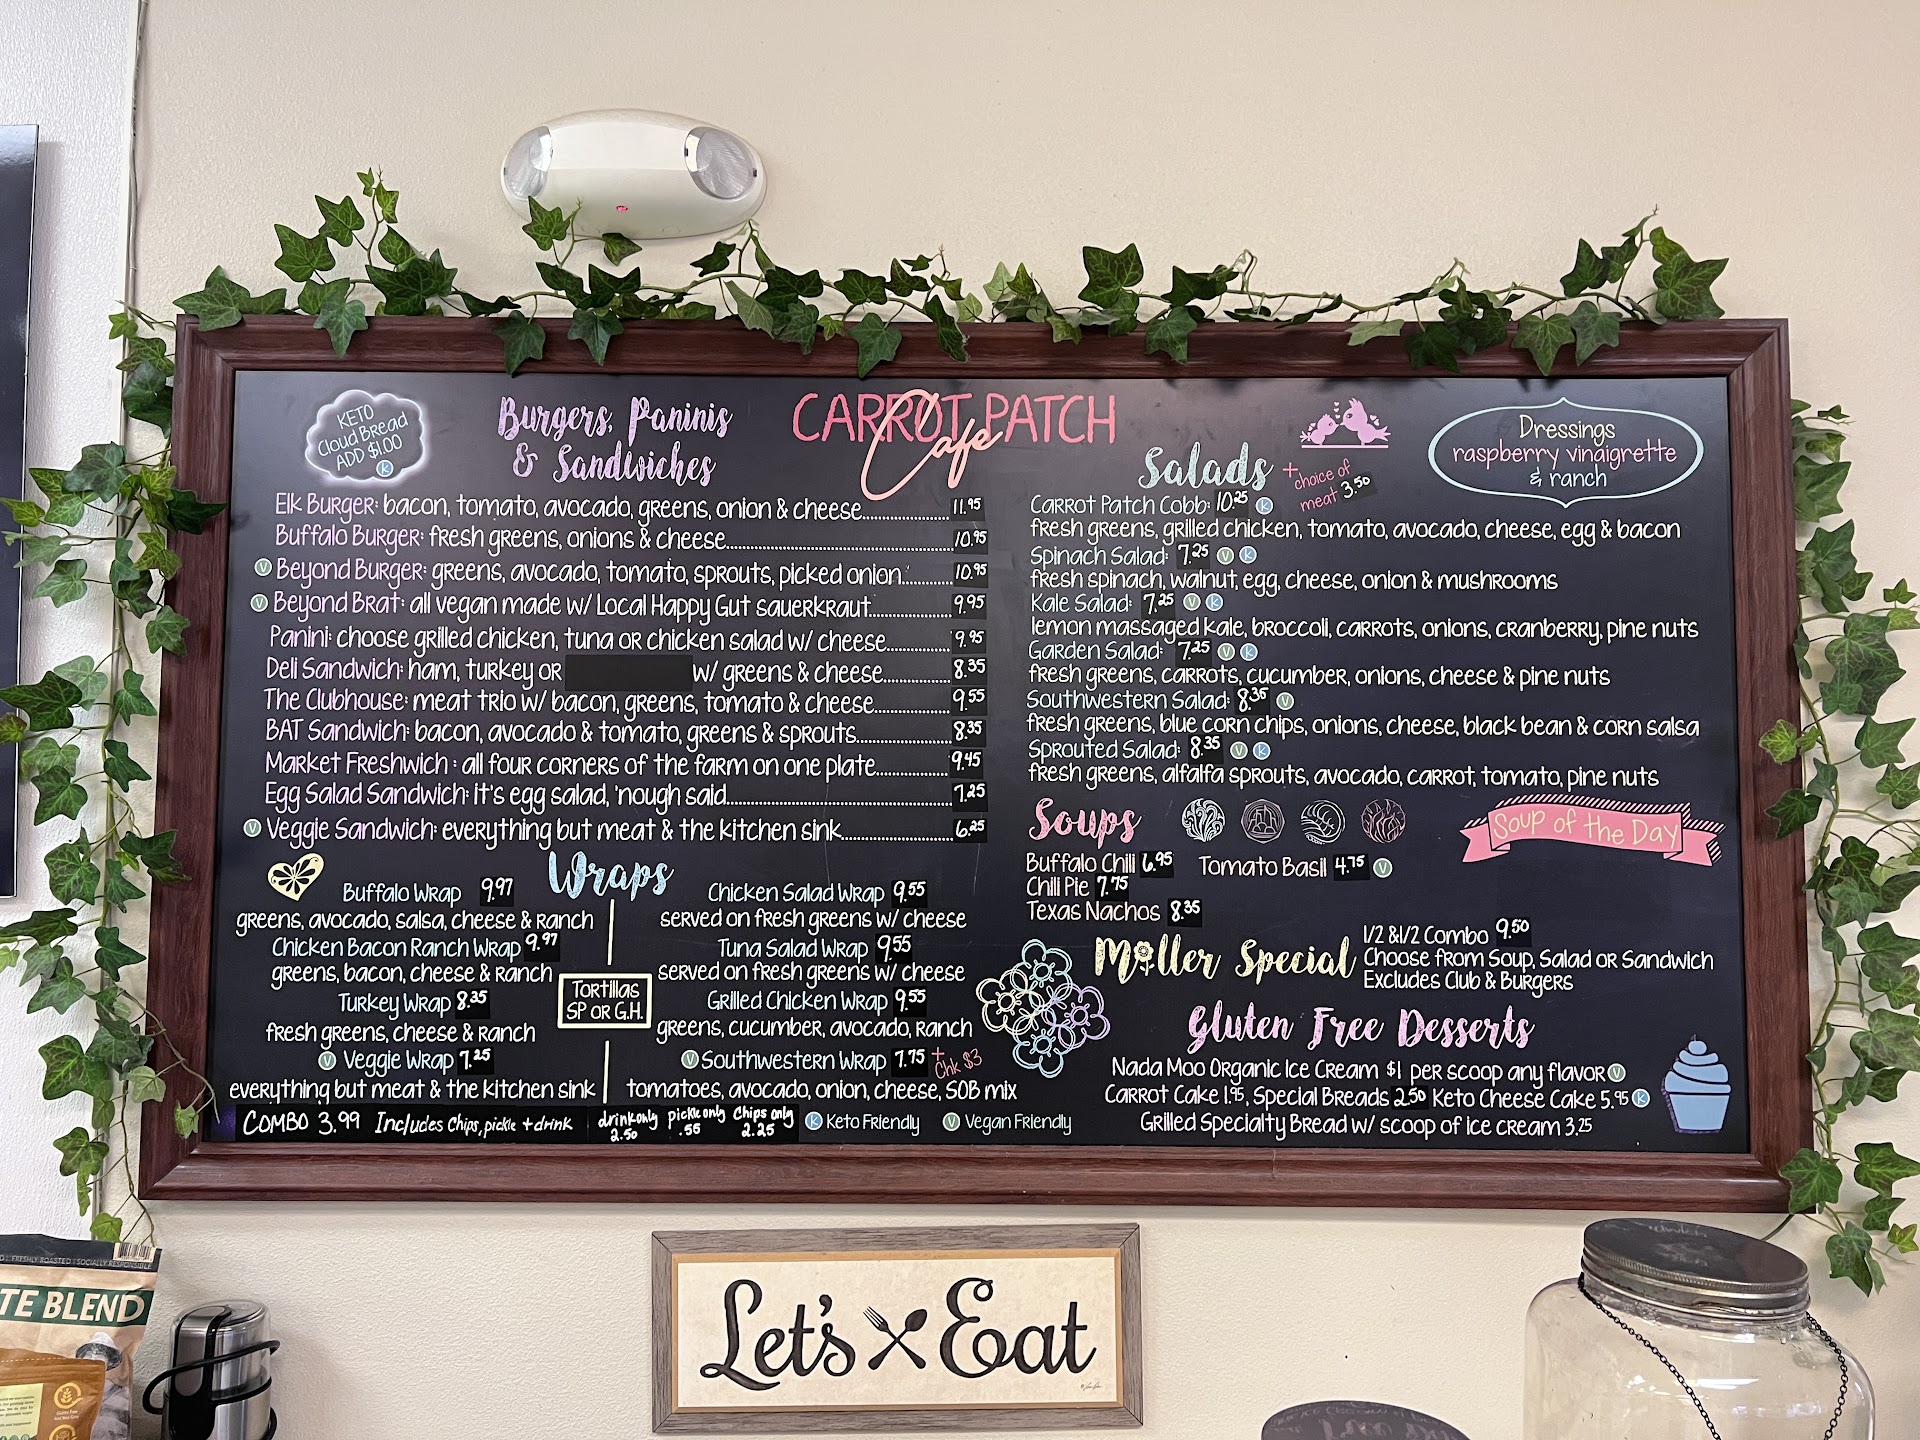 KETO
Cloud Bread
ADD $1.00
K
Burgers, Paninis
& Sandwiches
CARROT PATCH
Cafe
Elk Burger: bacon, tomato, avocado, greens, onion & cheese 11.95
Buffalo Burger: fresh greens, onions & cheese 10.95
V Beyond Burger: greens, avocado, tomato, sprouts, picked onion 10.95
V Beyond Brat: all vegan made w/ Local Happy Gut sauerkraut 9.95
Panini: choose grilled chicken, tuna or chicken salad w/ cheese 9.95
Deli Sandwich: ham, turkey or w/ greens & cheese 8.35
The Clubhouse: meat trio w/ bacon, greens, tomato & cheese 9.55
BAT Sandwich: bacon, avocado & tomato, greens & sprouts 8.35
Market Freshwich : all four corners of the farm on one plate 9.45
Egg Salad Sandwich: it's egg salad, 'nough said 7.25
V Veggie Sandwich: everything but meat & the kitchen sink 6.25
Wraps
Buffalo Wrap 9.97
greens, avocado, salsa, cheese & ranch
Chicken Bacon Ranch Wrap 9.97
greens, bacon, cheese & ranch
Turkey Wrap 8.35
fresh greens, cheese & ranch
V Veggie Wrap 7.25
everything but meat & the kitchen sink
Tortillas
SP or G.H.
Chicken Salad Wrap 9.55
served on fresh greens w/ cheese
Tuna Salad Wrap 9.55
served on fresh greens w/ cheese
Grilled Chicken Wrap 9.55
greens, cucumber, avocado, ranch
V Southwestern Wrap 7.75 + Chk $3
tomatoes, avocado, onion, cheese, SOB mix
COMBO 3.99 Includes Chips, pickle + drink
drink only 2.50
pickle only .55
Chips only 2.25
K Keto Friendly V Vegan Friendly
Salads
+ choice of
meat 3.50
Dressings
raspberry vinaigrette
& ranch
Carrot Patch Cobb: 10.25 K
fresh greens, grilled chicken, tomato, avocado, cheese, egg & bacon
Spinach Salad: 7.25 V K
fresh spinach, walnut, egg, cheese, onion & mushrooms
Kale Salad: 7.25 V K
lemon massaged kale, broccoli, carrots, onions, cranberry, pine nuts
Garden Salad: 7.25 V K
fresh greens, carrots, cucumber, onions, cheese & pine nuts
Southwestern Salad: 8.35 V
fresh greens, blue corn chips, onions, cheese, black bean & corn salsa
Sprouted Salad: 8.35 V K
fresh greens, alfalfa sprouts, avocado, carrot, tomato, pine nuts
Soups
Soup of the Day
Buffalo Chili 6.95 Tomato Basil 4.75 V
Chili Pie 7.75
Texas Nachos 8.35
Miller Special
1/2 & 1/2 Combo 9.50
Choose from Soup, Salad or Sandwich
Excludes Club & Burgers
Gluten Free Desserts
Nada Moo Organic Ice Cream $1 per scoop any flavor V
Carrot Cake 1.95, Special Breads 2.50 Keto Cheese Cake 5.95 K
Grilled Specialty Bread w/ scoop of ice cream 3.25
Let's Eat
FRESHLY ROASTED | SOCIALLY RESPONSIBLE
TE BLEND